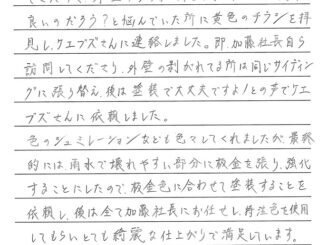 良いのだろう？と悩んでいた所に黄色のチラシを拝
見し、ケエブズさんに連絡しました。即、加藤社長自ら
訪問してくださり、外壁の剥がれてる所は同じサイディン
グに張り替え、後は塗装で大丈夫ですよ！との声でケエ
ブズさんに依頼しました。
色のシュミレーションなども色々してくれましたが、最終
的には、雨水で壊れやすい部分に板金を張り、強化
することにしたので、板金色に合わせて塗装することを
依頼し、後は全て加藤社長にお任せし、特注色を使用
してもらいとても綺麗な仕上がりで満足しています。